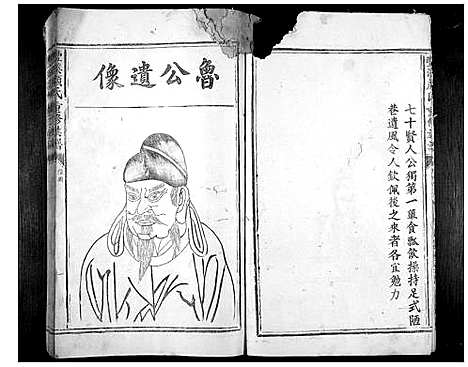 七十賢人公獨第一簞食瓢飲操持足式陋
巷遺風令人欽佩後之來者各宜勉力
魯公遺像